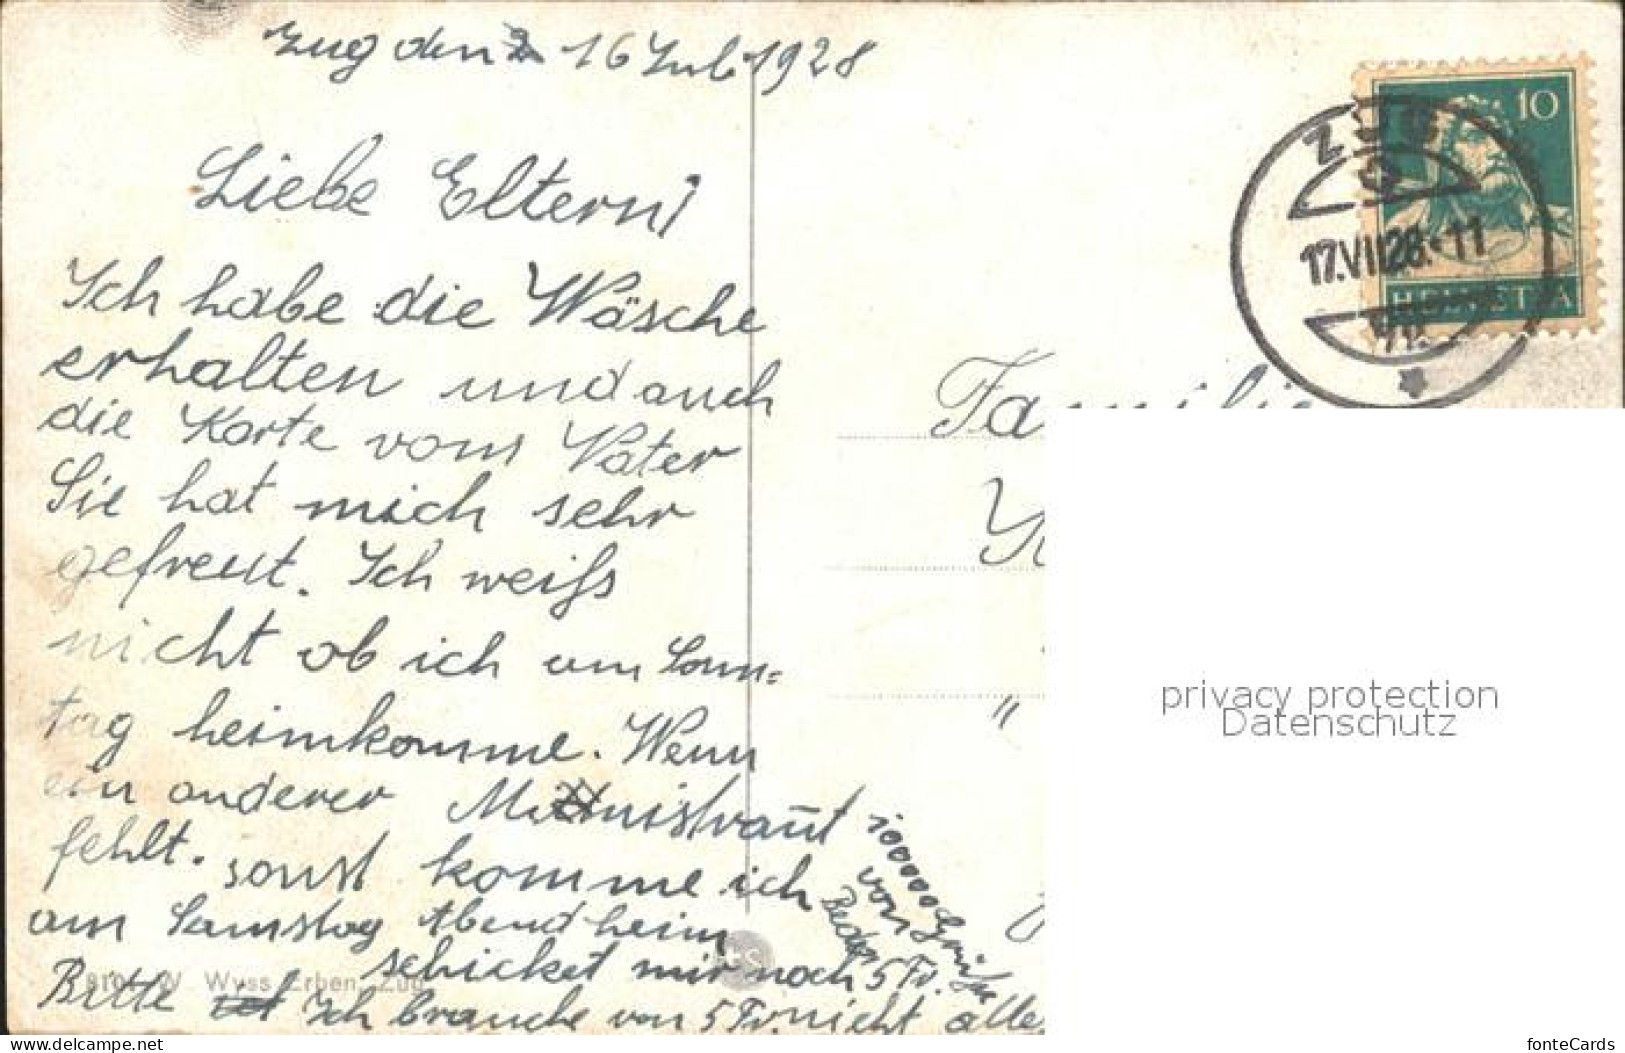 Zug den 16 Juli 1928
Liebe Eltern!
Ich habe die Wäsche
erhalten und auch
die Karte vom Vater
Sie hat mich sehr
gefreut. Ich weiss
nicht ob ich am Sonn=
tag heimkomme. Wenn
ein anderer Ministrant
fehlt. sonst komme ich
am Samstag Abend heim
schicket mir noch 5 Fr.
Bitte Ich brauche von 5 Fr. nicht alle
1000000 Grüsse
von
W. Wyss Erben, Zug
10
ZUG
17.VII.28.-11
HELVETIA
Familie
"
privacy protection
Datenschutz
www.delcampe.net
fonteCards